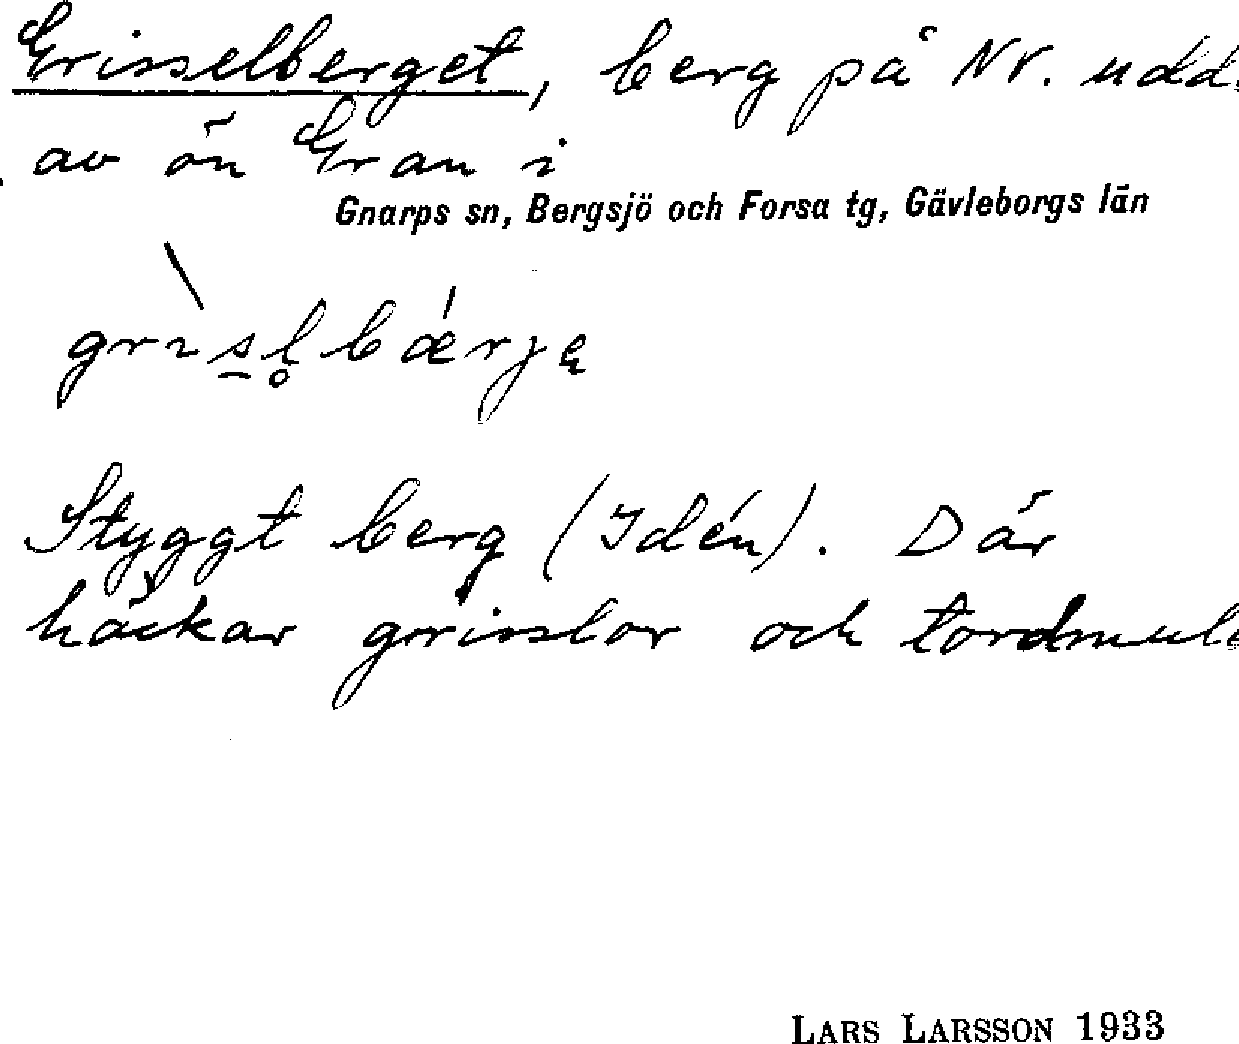 Grisselberget, berg på NV. udd.
av ön Gran i
Gnarps sn, Bergsjö och Forsa tg, Gävleborgs län
grìs̲l̥bǽrję
Styggt berg (Idén). Där
häckar grisslor och tordmule
LARS LARSSON 1933